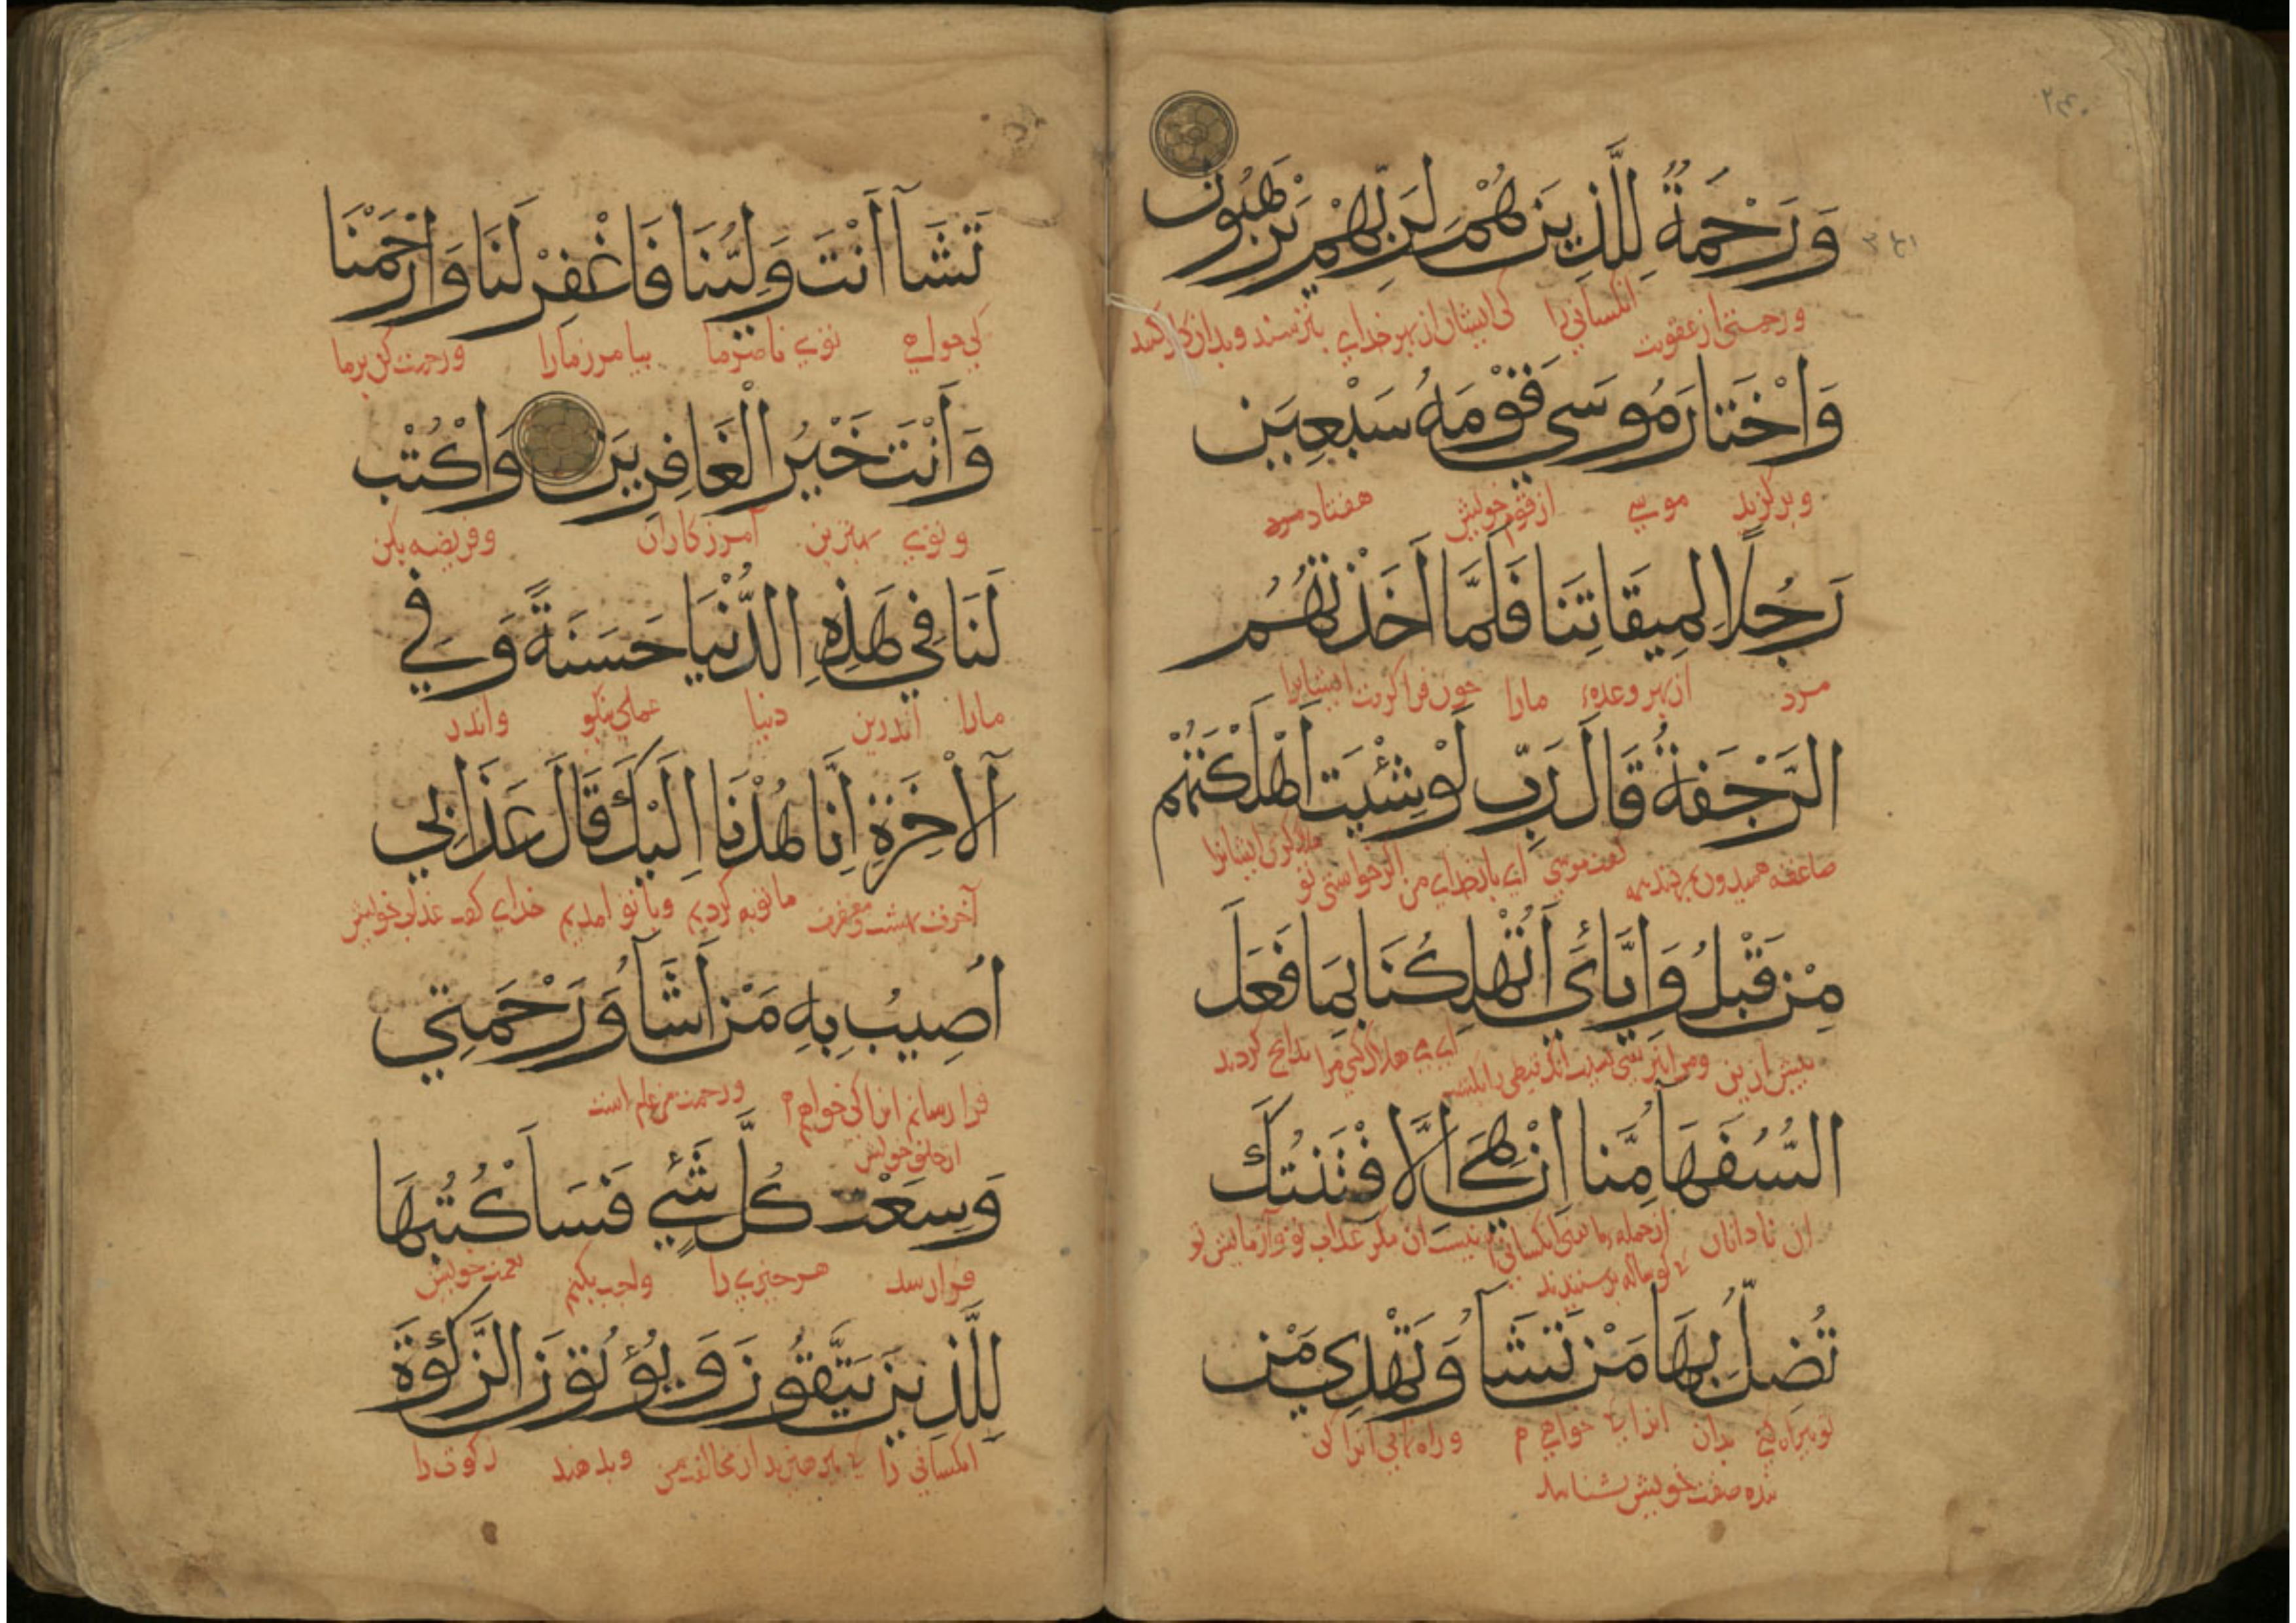 وَرَحْمَةٌ لِلَّذِينَ هُمْ لِرَبِّهِمْ يَرْهَبُونَ
ورحمتی از عقوبت انکسانی را کی ایشان از بهر خدای بترسند و بدان کار کنند
وَاخْتَارَ مُوسَى قَوْمَهُ سَبْعِينَ
و برگزید موسی از قوم خویش هفتاد مرد
رَجُلًا لِمِيقَاتِنَا فَلَمَّا أَخَذَتْهُمُ
مرد از بهر وعدهٔ مارا چون فرا گرفت ایشانرا
الرَّجْفَةُ قَالَ رَبِّ لَوْ شِئْتَ أَهْلَكْتَهُمْ
صاعقه گفت موسی ای بار خدای من اگر خواستی تو هلاک کردی ایشانرا
مِنْ قَبْلُ وَإِيَّايَ أَتُهْلِكُنَا بِمَا فَعَلَ
پیش ازین ومرا نیز هلاک کنی مرا بدانچ کردند
السُّفَهَا مِنَّا إِنْ هِيَ إِلَّا فِتْنَتُكَ
ان نادانان از جمله ما نیست ان مگر عذاب تو و آزمایش تو
کوساله پرستیدند
تُضِلُّ بِهَا مَنْ تَشَا وَتَهْدِي مَنْ
بدان انرا خواهی و راه نمایی انرا کی
صفت خویش
تَشَآ أَنْتَ وَلِيُّنَا فَاغْفِرْ لَنَا وَارْحَمْنَا
کی خواهی توی ناصر ما بیامرز مارا ورحمت کن برما
وَأَنْتَ خَيْرُ الْغَافِرِينَ وَاكْتُبْ
وتوی بهترین آمرزکاران وفریضه بکن
لَنَا فِي هَذِهِ الدُّنْيَا حَسَنَةً وَفِي
مارا اندرین دنیا عملی نیکو واندر
الْآخِرَةِ إِنَّا هُدْنَا إِلَيْكَ قَالَ عَذَابِي
آخرت بهشت و مغفرت ما توبه کردیم وبا تو امدیم خدای گفت عذاب خویش
أُصِيبُ بِهِ مَنْ أَشَآ وَرَحْمَتِي
فرا رسانم انرا کی خواهم ورحمت من عام است
از خلق خویش
وَسِعَتْ كُلَّ شَيْءٍ فَسَأَكْتُبُهَا
فرا رسد هر چیزی را واجب بکنم نعمت خویش
لِلَّذِينَ يَتَّقُونَ وَيُؤْتُونَ الزَّكَوةَ
انکسانی را کی بپرهیزند از مخالفت من وبدهند زکوة را